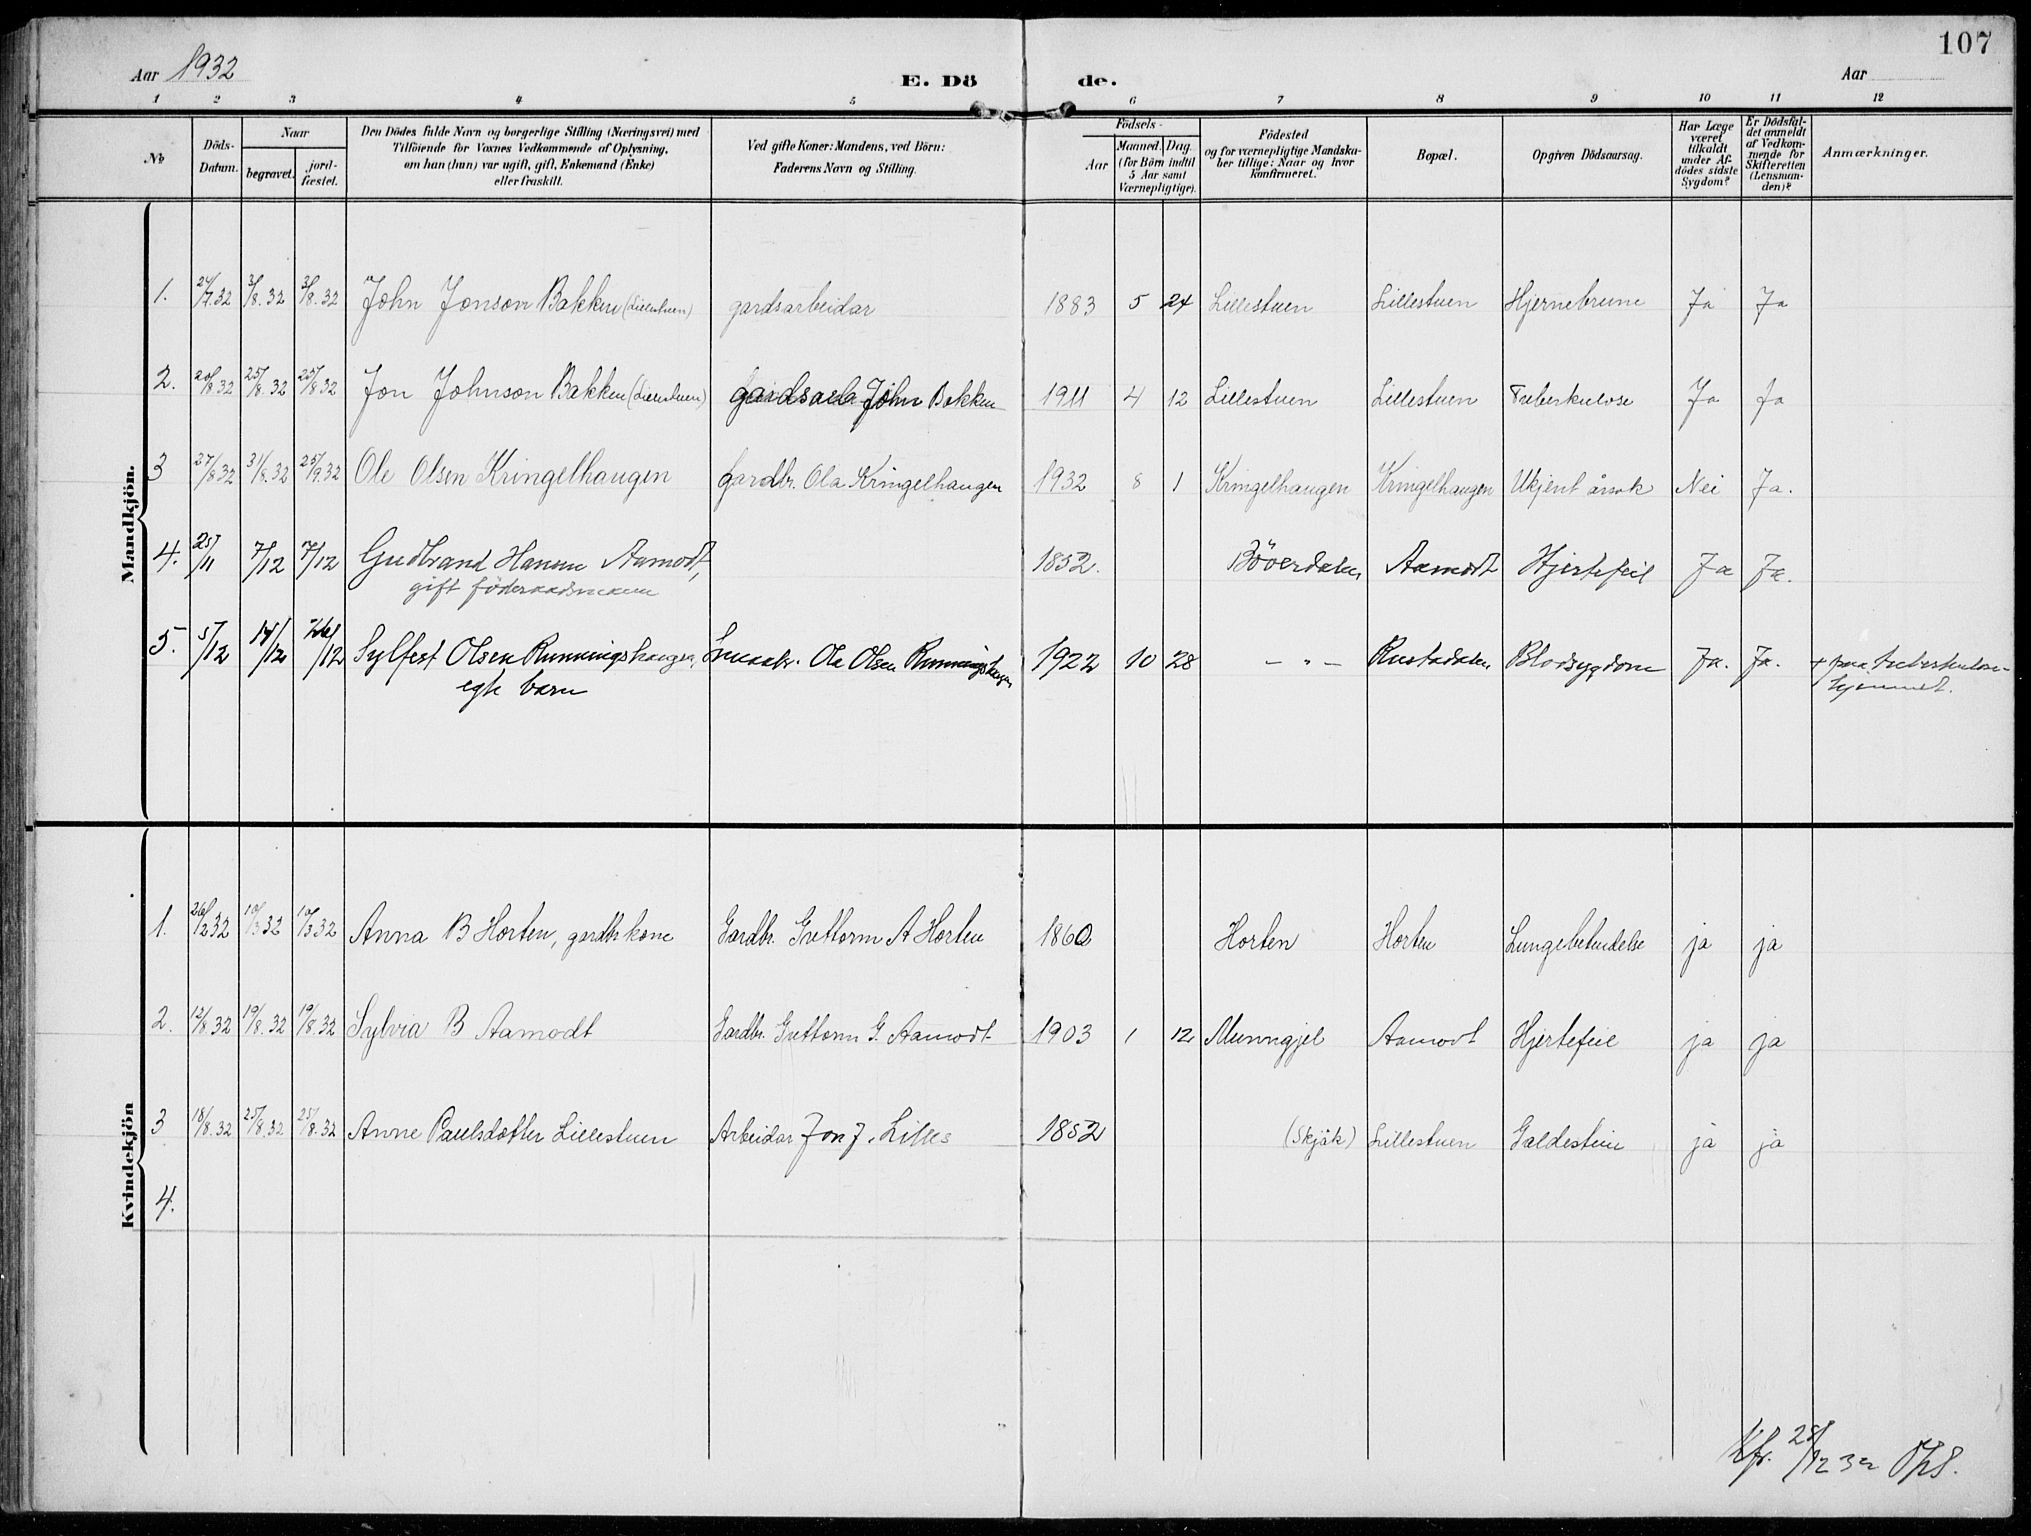 107
Aar 1932 E. Dö de. Aar
1 2 3 4 5 6 7 8 9 10 11 12
No
Döds-Datum.
Naar
begravet.
jord-fæstet.
Den Dödes fulde Navn og borgerlige Stilling (Næringsvei) med
Tilföiende for Voxnes Vedkommende af Oplysning,
om han (hun) var ugift, gift, Enkemand (Enke)
eller fraskilt.
Ved gifte Koner: Mandens, ved Börn:
Faderens Navn og Stilling.
Födsels-
Aar
Maaned. Dag.
(for Börn indtil
5 Aar samt
Værnepligtige).
Födested
og for værnepligtige Mandska-
ber tillige: Naar og hvor
konfirmeret.
Bopæl.
Opgiven Dödsaarsag.
Har Læge
været
tilkaldt
under Af-
dödes sidste
Sygdom?
Er Dödsfal-
det anmeldt
af Vedkom-
mende for
Skifteretten
(Lensman-
den)?
Anmærkninger.
Mandkjön.
1. 24/7.32 3/8.32 3/8.32 John Jonson Bakken (Lillestuen) gardsarbeidar 1883 5 24 Lillestuen Lillestuen Hjernebrune Ja Ja
2. 20/8 32 25/8.32 25/8 32 Jon Johnson Bakken (Lillestuen) John Bakken 1911 4 12 Lillestuen Lillestuen Tuberkulose Ja Ja
3 27/8 32 31/8.32 25/9.32 Ole Olsen Kringelhaugen gardbr. Ola Kringelhaugen 1932 8 1 Kringelhaugen Kringelhaugen Ukjent årsak Nei Ja.
4. 25/11 7/12 7/12 Gudbrand Hansen Aamodt, 1852. Böverdalen Aamodt Hjertefeil Ja Ja.
gift föderaadsmann
5. 5/12 14/12 26/12 Sylfest Olsen Runningshaugen, Smaabr. Ola Olsen Runningshaugen 1922 10 28 — " — Rustadalen Blodsygdom Ja. Ja. + paa tuberkulose-
egte barn hjemmet.
Kvindekjön
1. 26/2 32 10/3 32 10/3 32 Anna B Horten, gardbr kone Gardbr. Guttorm A Horten 1860 Horten Horten Lungebetendelse ja ja
2. 12/8.32 19/8.32 19/8.32 Sylvia B Aamodt Gardbr. Guttorm G. Aamodt 1903 1 12 Munngjel Aamodt Hjertefeil ja ja
3 18/8.32 25/8.32 25/8.32 Anne Paulsdotter Lillestuen Arbeidar Jon J. Lilles 1852 (Skjåk) Lillestuen Galdestein ja ja
4.
Kfr. 28/12 32